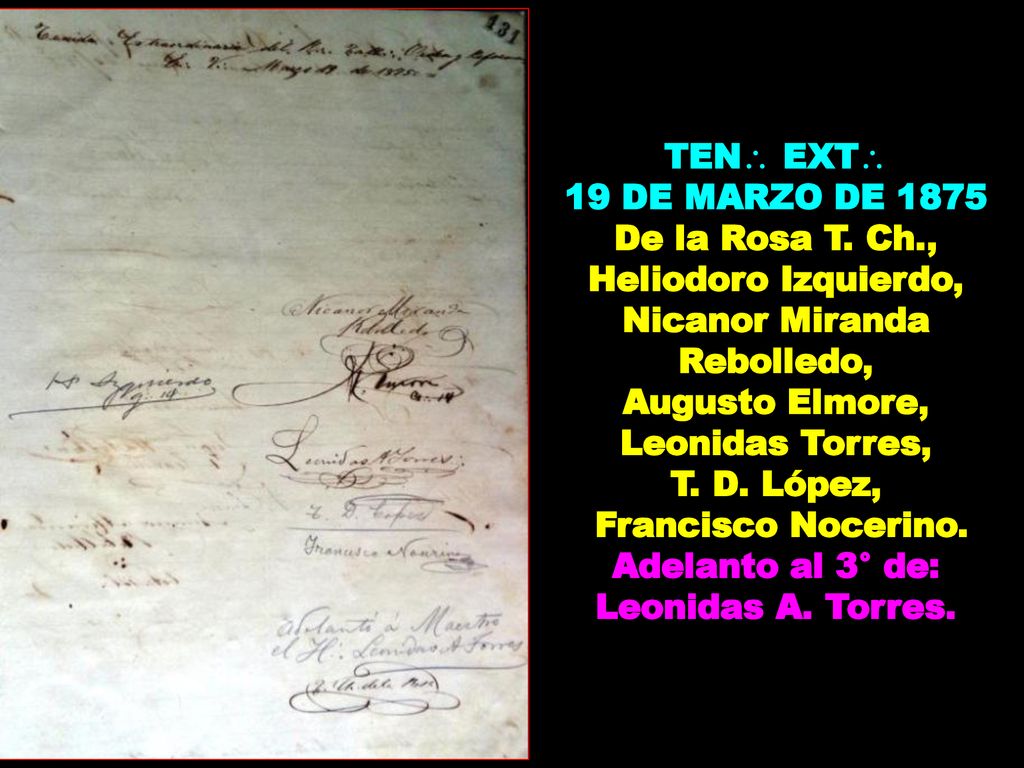 131
Tenida Extraordinaria del
Marzo 19 de 1875
Nicanor Miranda
Rebolledo
H Izquierdo
g. 18
Leonidas A Torres
T. D. Lopez
Francisco
Adelantó á Maestro
el H∴ Leonidas A Torres
T. Ch. de la Rosa
TEN∴ EXT∴
19 DE MARZO DE 1875
De la Rosa T. Ch.,
Heliodoro Izquierdo,
Nicanor Miranda
Rebolledo,
Augusto Elmore,
Leonidas Torres,
T. D. López,
Francisco Nocerino.
Adelanto al 3° de:
Leonidas A. Torres.